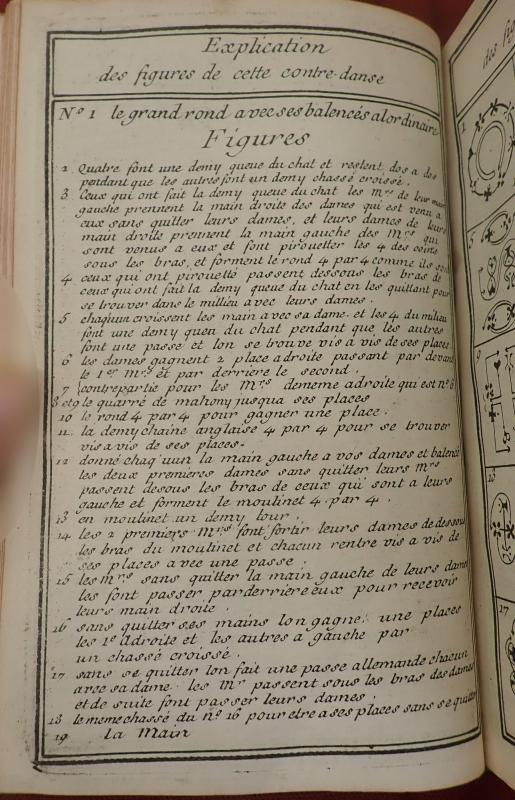 Explication
des figures de cette contre-danse
Nº 1 le grand rond avec ses balencés alordinaire
Figures
2 Quatre font une demy queue du chat et restent dos a dos
pendant que les autres font un demy chassé croissé.
3 Ceux qui ont fait la demy queue du chat les Mrs de leur main
gauche prennent la main droite des dames qui est venu a
eux sans quitter leurs dames, et leurs dames de leurs
main droite prennent la main gauche des Mrs qui
sont venus a eux et font pirouetter les 4 des coins
sous les bras, et forment le rond 4 par 4 comme ils sont
4 ceux qui ont pirouetté passent dessous les bras de
ceux qui ont fait la demy queue du chat en les quittant pour
se trouver dans le millieu avec leurs dames.
5 chaquun croissent les main avec sa dame. et les 4 du milieu
font une demy queu du chat pendant que les autres
font une passe et lon se trouve vis a vis de ses places
6 les dames gagnent 2 place adroite passant par devant
le 1er Mrs et par derriere le second.
7 contrepartie pour les Mrs dememe adroite qui est nº 6
8 et 9 le quarré de mahony jusqua ses places
10 le rond 4 par 4 pour gagner une place.
11 la demy chaine anglaise 4 par 4 pour se trouver
vis a vis de ses places.
12 donné chaq'uun la main gauche a vos dames et balencé
les deux premieres dames sans quitter leurs Mrs
passent desous les bras de ceux qui sont a leurs
gauche et forment le moulinet 4 par 4.
13 en moulinet un demy tour.
14 les 2 premiers Mrs font sortir leurs dames de dessous
les bras du moulinet et chacun rentre vis a vis de
ses places avec une passe.
15 les Mrs sans quitter la main gauche de leurs dames
les font passer par derriere eux pour recevoir
leurs main droite.
16 sans quitter ses mains lon gagne une places
les 1e adroite et les autres a gauche par
un chassé croissé.
17 sans se quitter lon fait une passe allemande chacun
avec sa dame. les Mr passent sous les bras des dames
et de suite font passer leurs dames.
18 le meme chassé du nº 16 pour etre a ses places sans se quitter
19 la Main
des
1
5
9
13
17